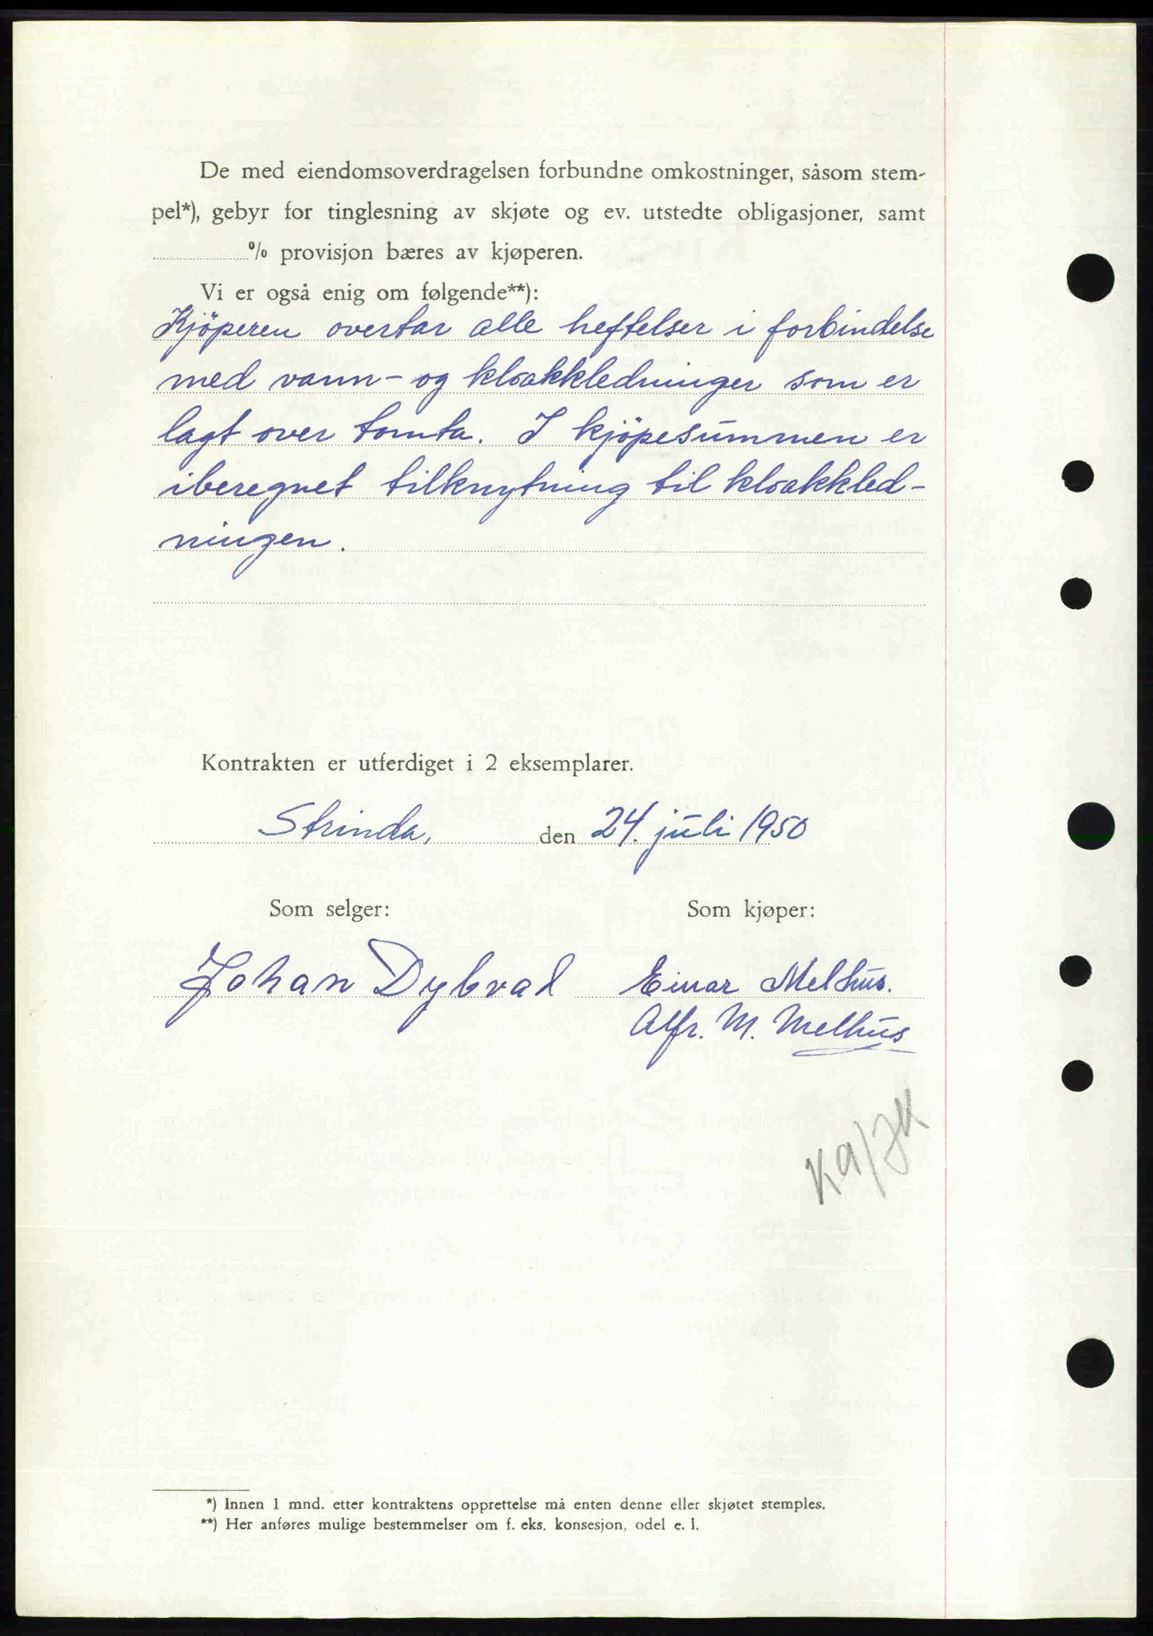 De med eiendomsoverdragelsen forbundne omkostninger, såsom stem-
pel*), gebyr for tinglesning av skjøte og ev. utstedte obligasjoner, samt
% provisjon bæres av kjøperen.
Vi er også enig om følgende**):
Kjöperen overtar alle heftelser i forbindelse
med vann- og kloakkledninger som er
lagt over tomta. I kjöpesummen er
iberegnet tilknytning til kloakkled-
ningen.
Kontrakten er utferdiget i 2 eksemplarer.
Strinda, den 24. juli 1950
Som selger: Som kjøper:
Johan Dybvad Einar Melhus.
Alfr. M. Melhus
*) Innen 1 mnd. etter kontraktens opprettelse må enten denne eller skjøtet stemples.
**) Her anføres mulige bestemmelser om f. eks. konsesjon, odel e. l.